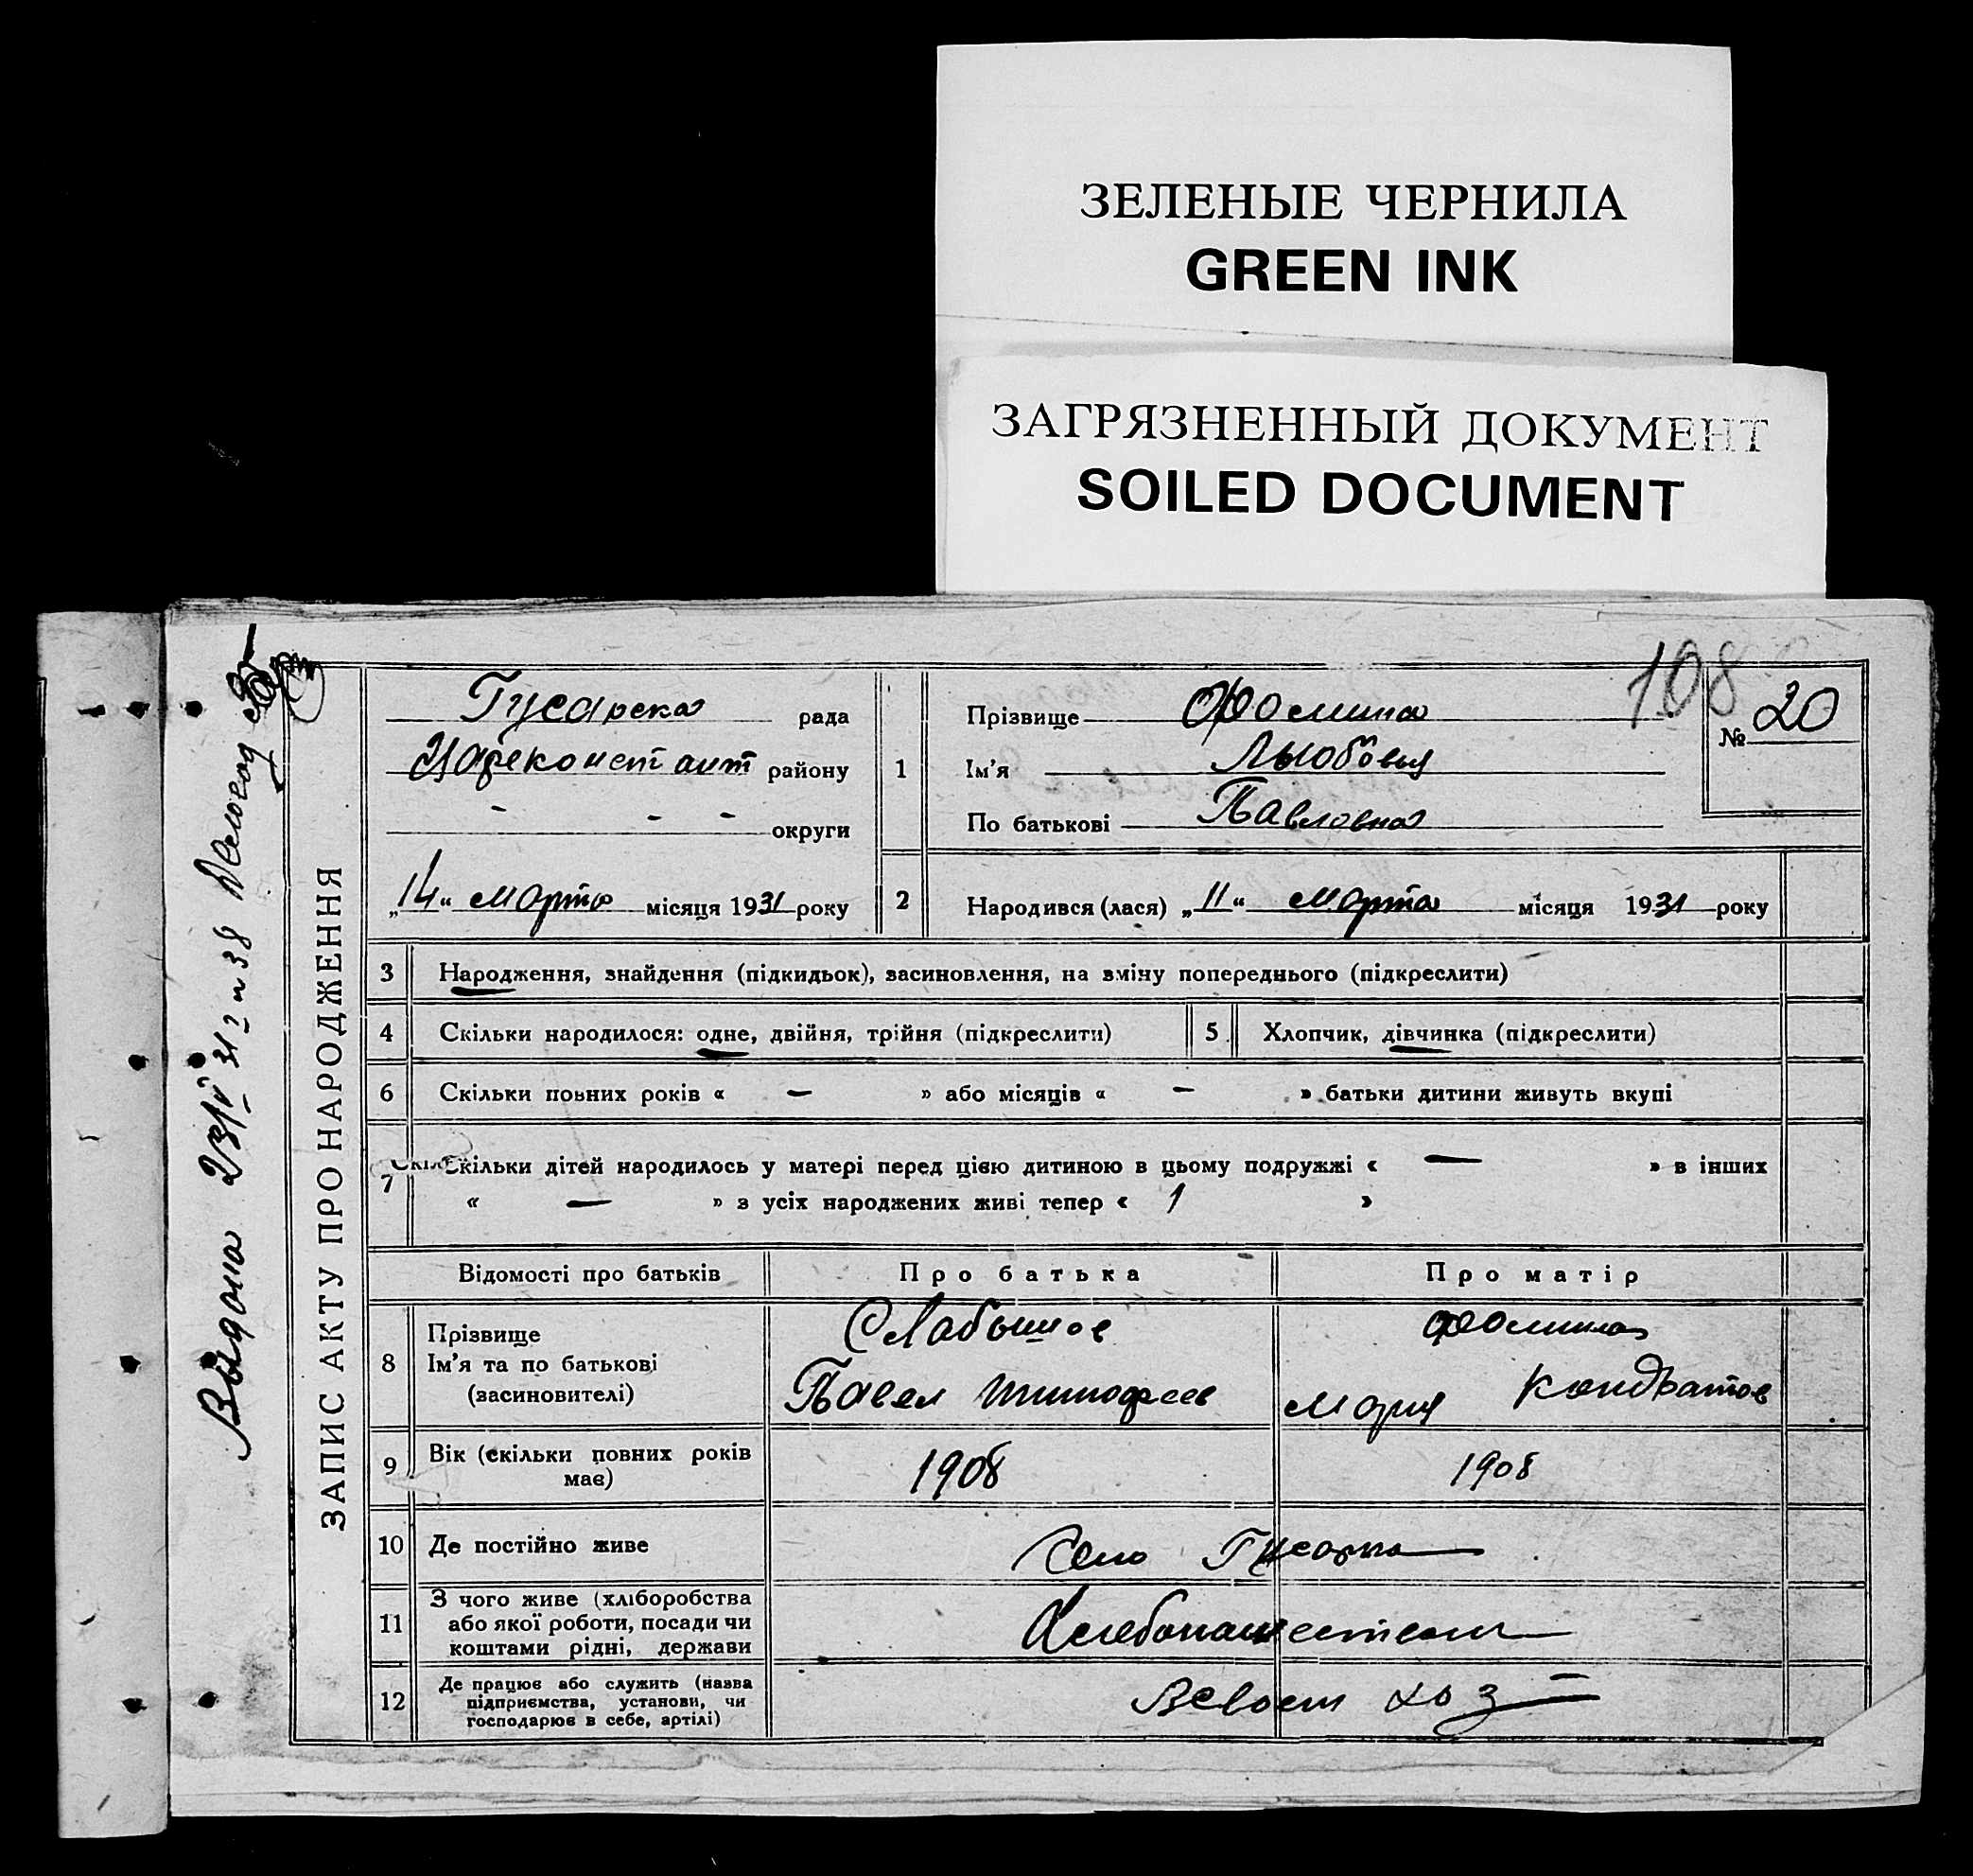 ЗЕЛЕНЫЕ ЧЕРНИЛА
GREEN INK
ЗАГРЯЗНЕННЫЙ ДОКУМЕНТ
SOILED DOCUMENT
108
Выдана 23/IV 31
ЗАПИС АКТУ ПРО НАРОДЖЕННЯ
Гусарска рада
Цареконстант району
- - - округи
„14“ марта місяця 1931 року
1
Прізвище Фомина
Ім'я Любовья
По батькові Павловна
№ 20
2 Народився (лася) „11“ марта місяця 1931 року
3 Народження, знайдення (підкидьок), засиновлення, на зміну попереднього (підкреслити)
4 Скільки народилося: одне, двійня, трійня (підкреслити)
5 Хлопчик, дівчинка (підкреслити)
6 Скільки повних років « — » або місяців « — » батьки дитини живуть вкупі
7 Скільки дітей народилось у матері перед цією дитиною в цьому подружжі « — » в інших
« — » з усіх народжених живі тепер « 1 »
Відомості про батьків Про батька Про матір
8 Прізвище
Ім'я та по батькові
(засиновителі)
Слабышов
Павел Тимофеев
Фомина
Мария Кондратов
9 Вік (скільки повних років
має)
1908 1908
10 Де постійно живе Село Гусарка
11 З чого живе (хліборобства
або якої роботи, посади чи
коштами рідні, держави
Хлебопашеством
12 Де працює або служить (назва
підприємства, установи, чи
господарює в себе, артілі)
В своем хоз